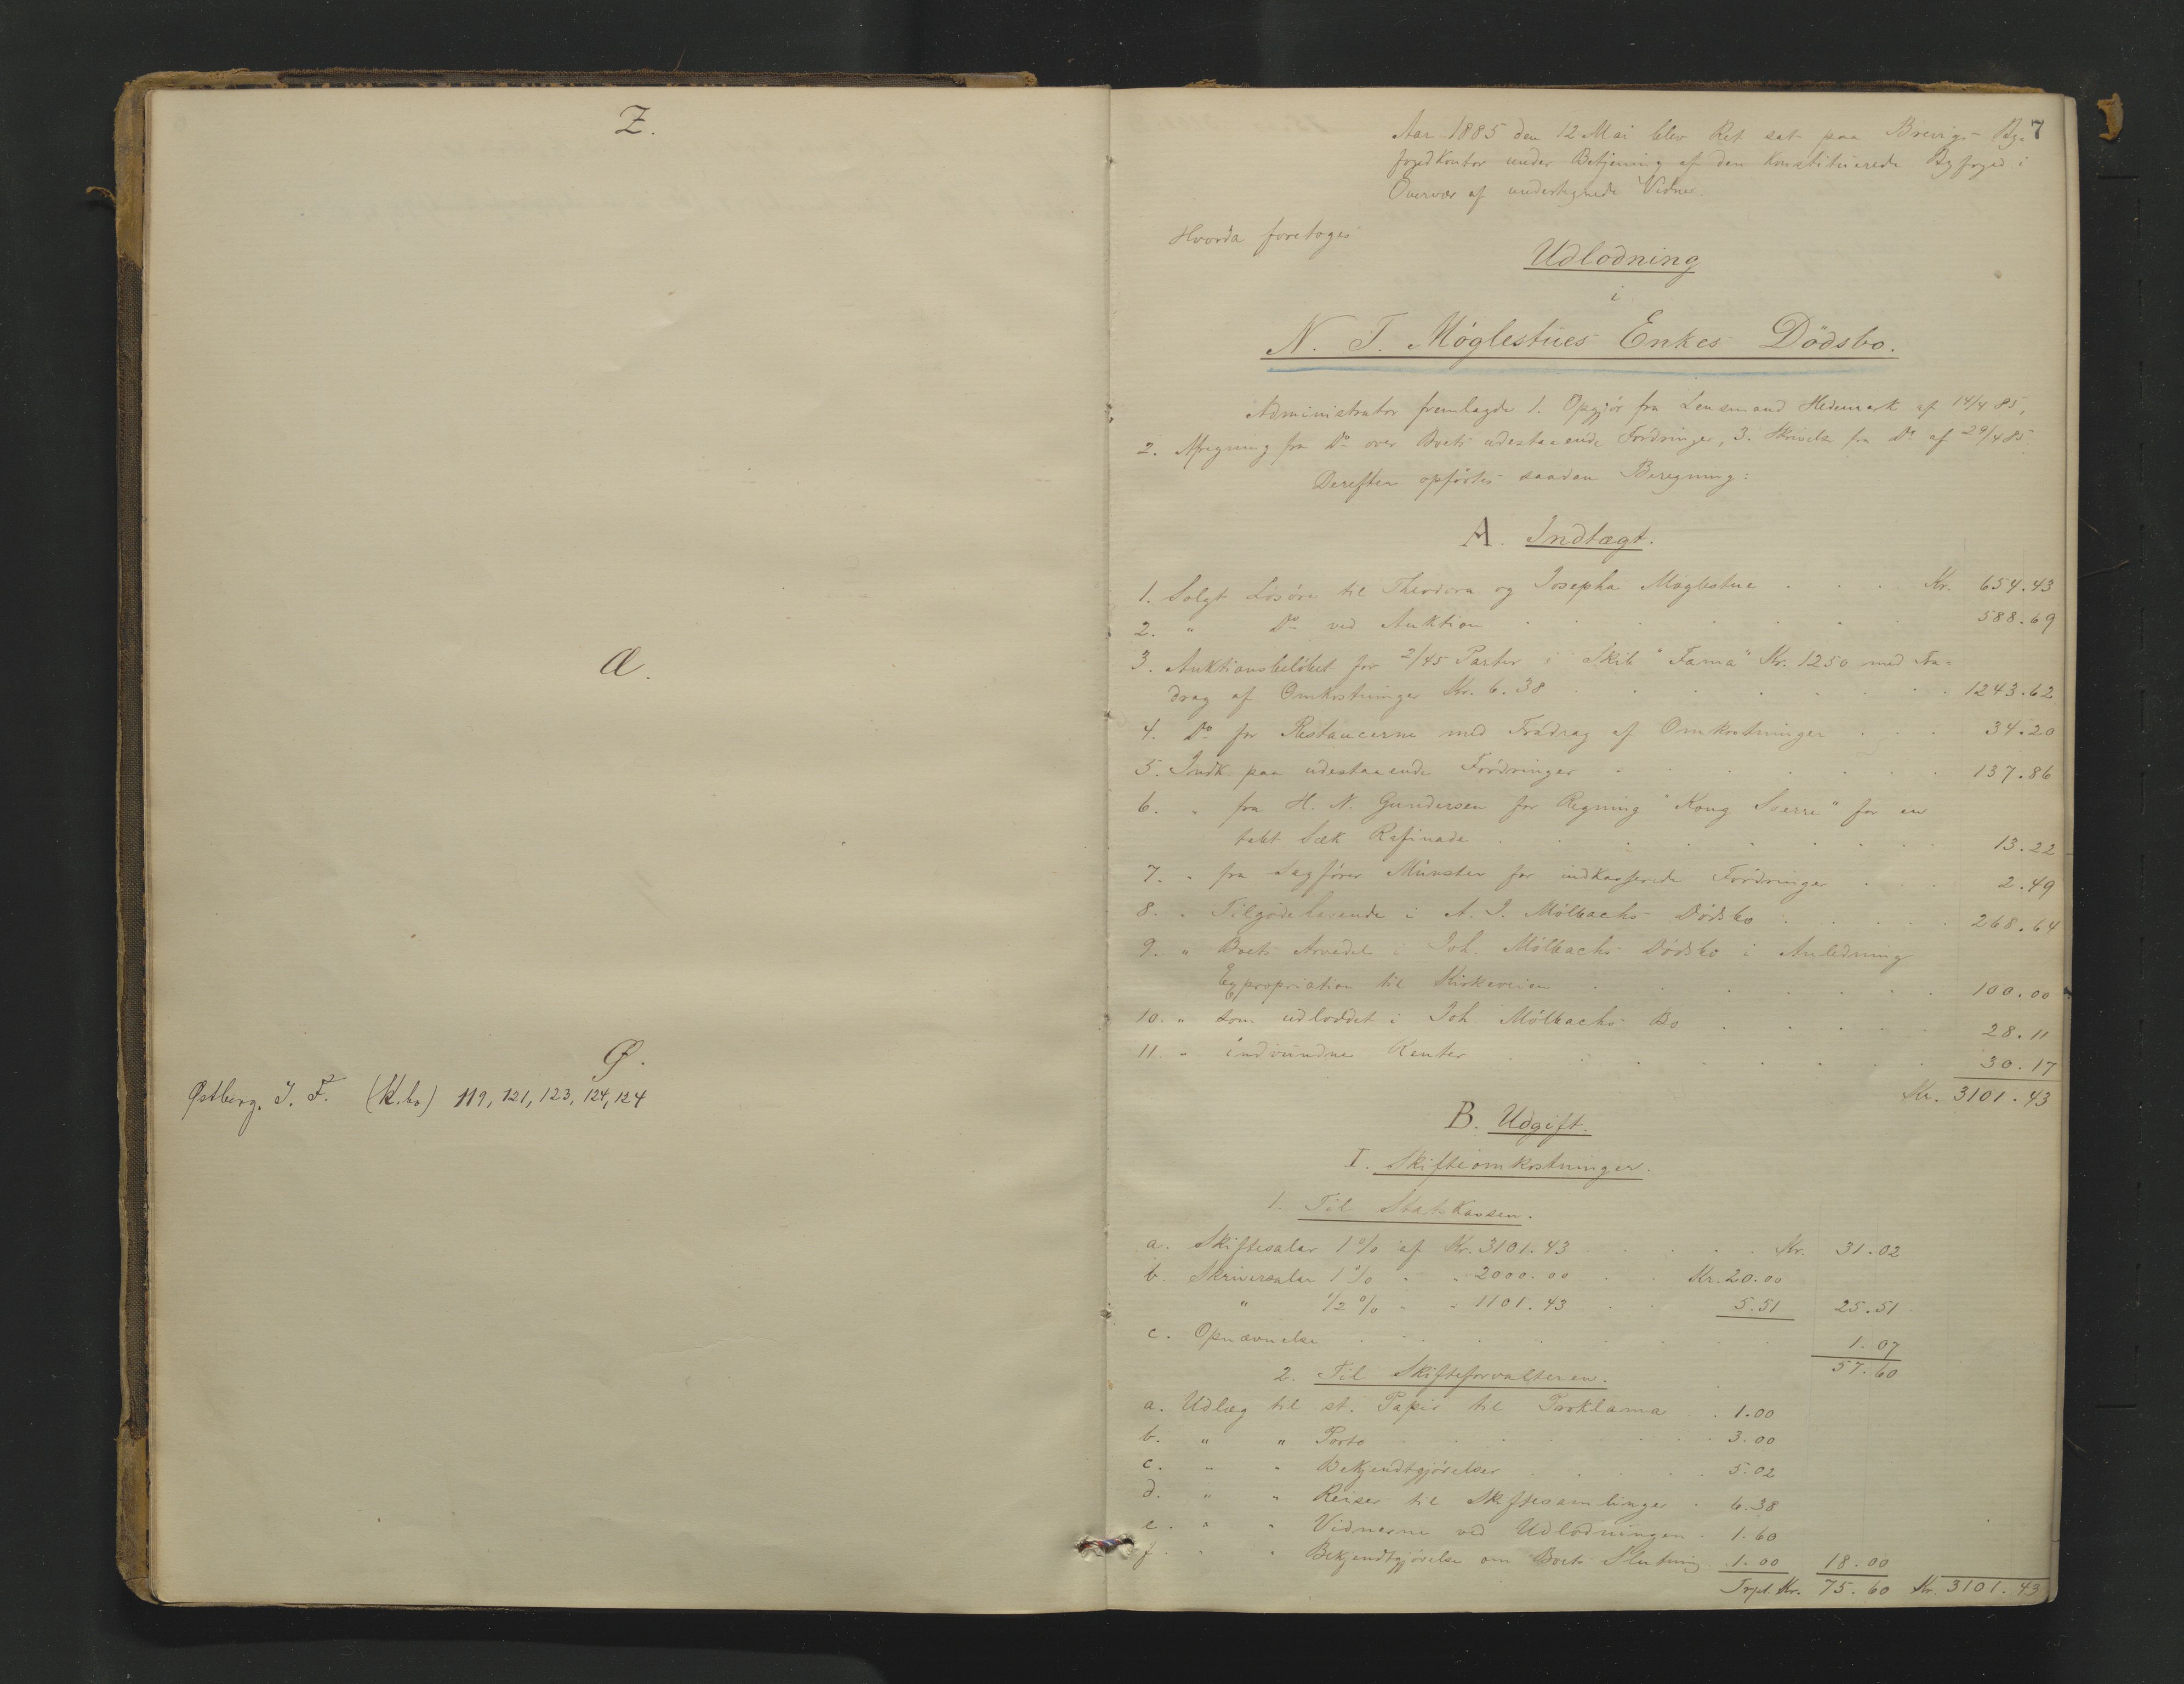 Z.
Æ.
Ø.
Østberg, J. F. (K.bo) 119, 121, 123, 124, 124
7
Aar 1885 den 12 Mai blev Ret sat paa Brevigs By-
fogedkontor under Betjening af den konstituerede Byfoged i
Overvær af undertegnede Vidner.
Hvorda foretoges
Udlodning
i
N. T. Møglestues Enkes Dödsbo.
Administrator fremlagde 1. Opgjör fra Lensmand Hedemark af 14/4 85,
2. Afregning fra Do over Boets udestaaende Fordringer, 3. Skrivelse fra Do af 29/4 85
Derefter opförtes saadan Beregning:
A. Indtægt.
1. Solgt Lösöre til Theodora og Josepha Møglestue . . . Kr. 654.43
2. " Do ved Auktion . . . 588.69
3. Auktionsbelöbet for 2/45 Parter i Skib "Fama" Kr. 1250 med Fra-
drag af Omkostninger Kr. 6.38 . . . 1243.62
4. Do for Restancerne med Fradrag af Omkostninger . . . 34.20
5. Indk. paa udestaaende Fordringer . . . 137.86
6. " fra H. N. Gundersen for Regning "Kong Sverre" for en
tabt Sæk Rafinade . . . 13.22
7. " fra Sagförer Münster for indkasserede Fordringer . . . 2.49
8. " Tilgodehavende i A. J. Mölbachs Dödsbo . . . 268.64
9. " Boets Arvedel i Joh. Mölbachs Dödsbo i Anledning
Expropriation til Kirkeveien . . . 100.00
10. " som udloddet i Joh. Mölbachs Bo . . . 28.11
11. " indvundne Renter . . . 30.17
Kr. 3101.43
B. Udgift.
I. Skifteomkostninger.
1. Til Statskassen.
a. Skiftesalar 1 % af Kr. 3101.43 . . . Kr. 31.02
b. Skriversalar 1 % " " 2000.00 . . Kr. 20.00
" 1/2 % " " 1101.43 . . 5.51 25.51
c. Opnævnelse . . . 1.07
57.60
2. Til Skifteforvalteren.
a. Udlæg til st. Papir til Proklama . . 1.00
b. " " Porto . . . 3.00
c. " " Bekjendtgjörelser . . . 5.02
d. " " Reiser til Skiftesamlinger . 6.38
e. " " Vidnerne ved Udlodningen . 1.60
f. " " Bekjendtgjörelse om Boets Slutning 1.00 18.00
Trpt. Kr. 75.60 Kr. 3101.43